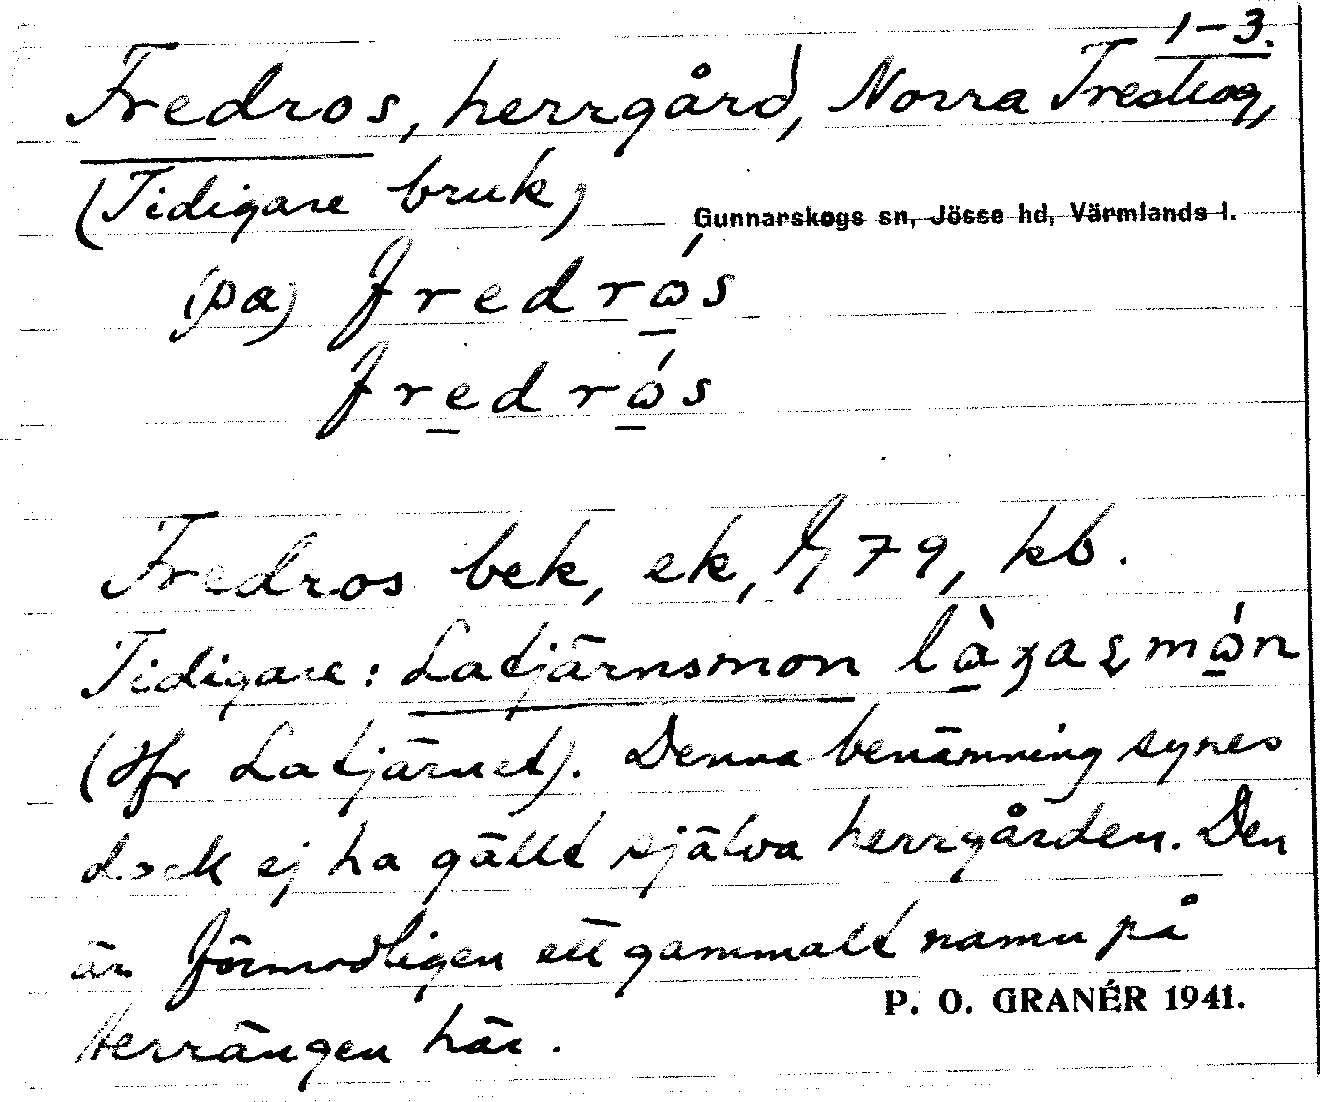 1-3.
Fredros, herrgård, Norra Treskog,
(Tidigare bruk)
Gunnarskogs sn, Jösse hd, Värmlands l.
(pa) fredrós
fredrós
Fredros bek, ek, 79, kb.
Tidigare: Latjärnsmon
(Jfr Latjärnet). Denna benämning synes
dock ej ha gällt själva herrgården. Den
är förmodligen ett gammalt namn på
terrängen här.
P. O. GRANÉR 1941.